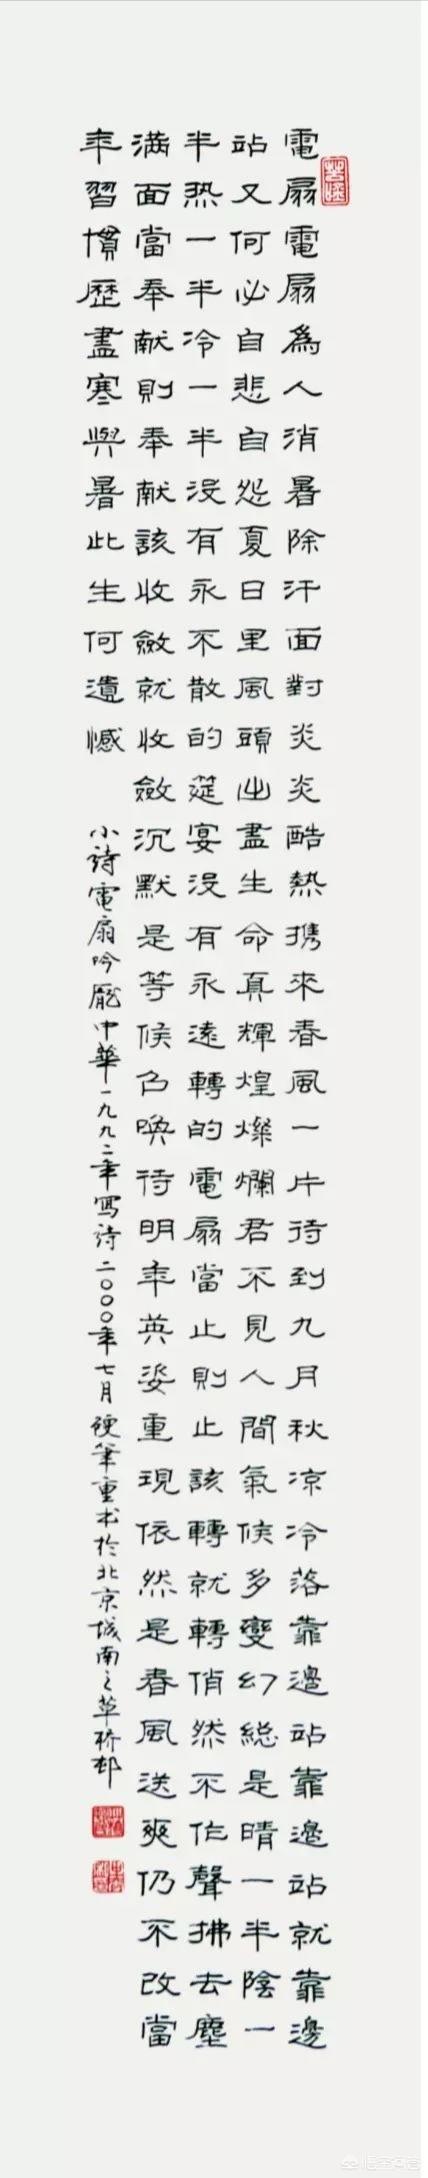 電扇電扇為人消暑除汗面對炎炎酷熱携來春風一片待到九月秋凉冷落靠邊站靠邊站就靠邊
站又何必自悲自怨夏日里風頭出盡生命真輝煌燦爛君不見人間氣候多變幻総是晴一半陰一
半热一半冷一半没有永不散的筵宴没有永遠轉的電扇當止則止該轉就轉俏然不作聲拂去塵
满面當奉献則奉献該收斂就收斂沉默是等候召唤待明年英姿重現依然是春風送爽仍不改當
年習慣歷盡寒與暑此生何遺憾
小詩電扇吟龐中華一九九二年寫詩二〇〇〇年七月硬筆重书於北京城南之草桥邨
悟空问答